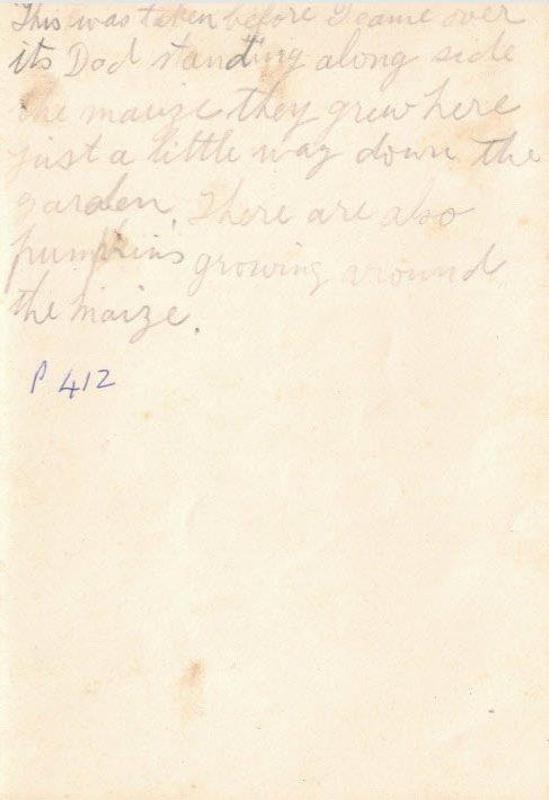 This was taken before I came over
its Dad standing along side
the maize they grew here
just a little way down the
garden. There are also
pumpkins growing around
the maize.
P 412